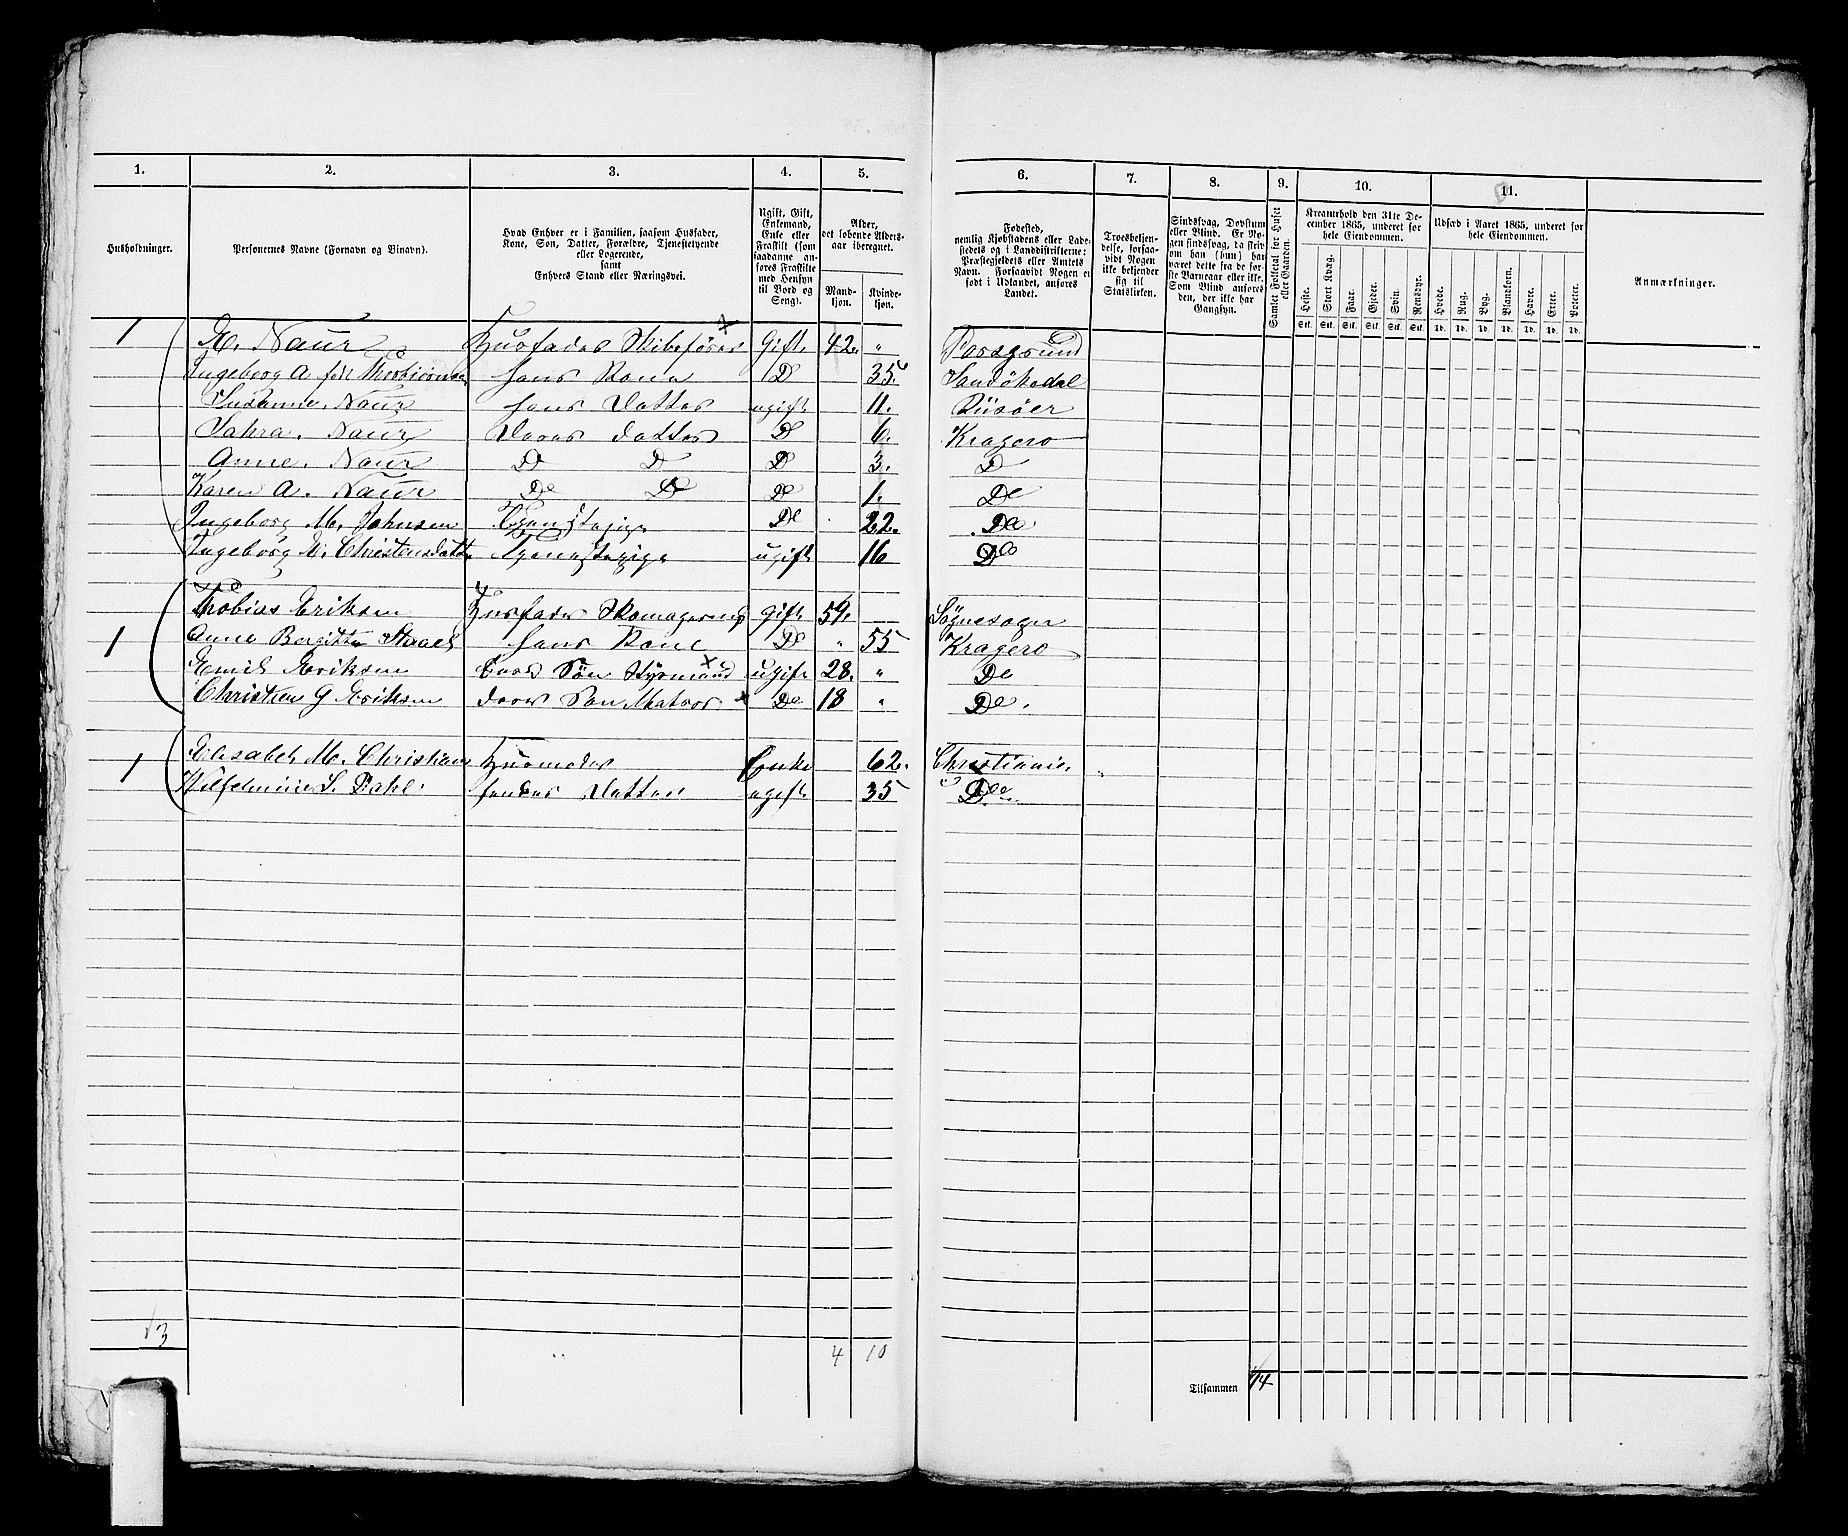 1. 2. 3. 4. 5. 6. 7. 8. 9. 10. 11.
Husholdninger.
Personernes Navne (Fornavn og Vinavn).
Hvad Enhver er i Familien, saasom Husfader, Kone, Søn, Datter, Forældre, Tjenestetyende eller Logerende, samt Enhvers Stand eller Næringsvei.
Ugift, Gift, Enkemand, Enke eller Fraskilt (som saadanne anføres Fraskilte med Hensyn til Bord og Seng).
Alder, det løbende Aldersaar iberegnet.
Mandkjøn. Kvindekjøn.
Fødested, nemlig Kjøbstadens eller Ladestedets og i Landdistrikterne: Præstegjeldets eller Amtets Navn. Forsaavidt Nogen er født i Udlandet, anføres Landet.
Troesbekjendelse, forsaavidt Nogen ikke bekjender sig til Statskirken.
Sindssvag, Døvstum eller Blind. Er Nogen sindssvag, da skriv om han (hun) har været dette fra de første Barneaar eller ikke. Som Blind anføres den, der ikke har Gangsyn.
Samlet Folketal for Huset eller Gaarden.
Kreaturhold den 31te December 1865, underet for hele Eiendommen.
Heste. Stort Kvæg. Faar. Gjeder. Svin. Rensdyr.
Udsæd i Aaret 1865, underet for hele Eiendommen.
Hvede. Rug. Byg. Blandkorn. Havre. Erter. Poteter.
Anmærkninger.
Stk. Stk. Stk. Stk. Stk. Stk. Td. Td. Td. Td. Td. Td. Td.
1 E. Naur Husfader Skibsfører Gift. 42. " Porsgrund
Ingeborg A. født Hans Kone D 35. Sandøkedal
Susanne. Naur hans Datter ugift 11. Riisøer
Sahra. Naur Deres datter D 6. Kragerø
Anne. Naur D D D 3. D
Karen A. Naur De De De 1. De
Ingeborg M. Johnsen Tjenstepige De 22. De
Ingeborg M. Christensdatte Tjenestepige ugift 16 De
Thobias Eriksen Husfader Skomager gift 59. Sognesogn
1 Anne Bergitte hans Kone De " 55 Kragerø
Emil Eriksen Deres Søn Styrmand ugift 28. " De
Christian G Eriksen deres Søn Matros De 18 " De.
1 Elisabet, M. Christians Husmoder Enke 62. Christianie
Wilhelmine S. Dahl. hendes Datter ugift 35 De
13 4 10
Tilsammen 14